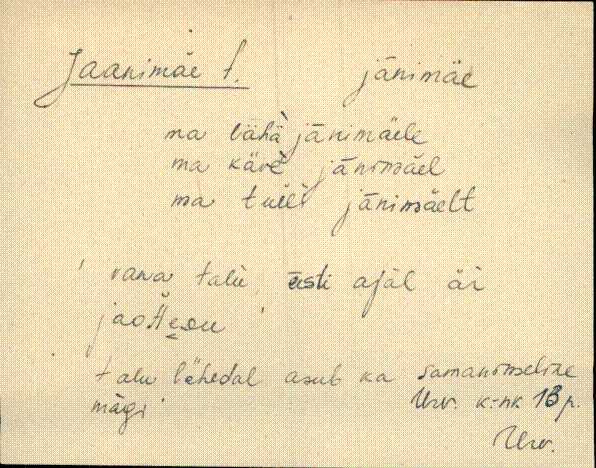 Jaanimäe t. jänimäe
ma lähä jänimäele
ma käve jänimäel
ma tulli jänimäelt
' vana talu, eesti ajal är
jaotteou '
talu lähedal asub ka samanimeline
mägi Urv. k-nk 13 p.
Urv.